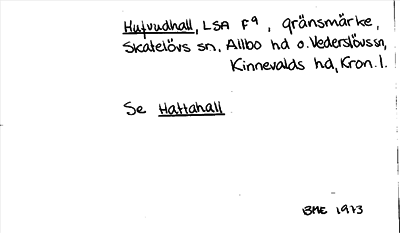 Huvudhall, LSA F9, gränsmärke,
Skatelövs sn, Allbo hd o. Vederslövs sn,
Kinnevalds hd, Kron. l.
Se Hattahall
BME 1973